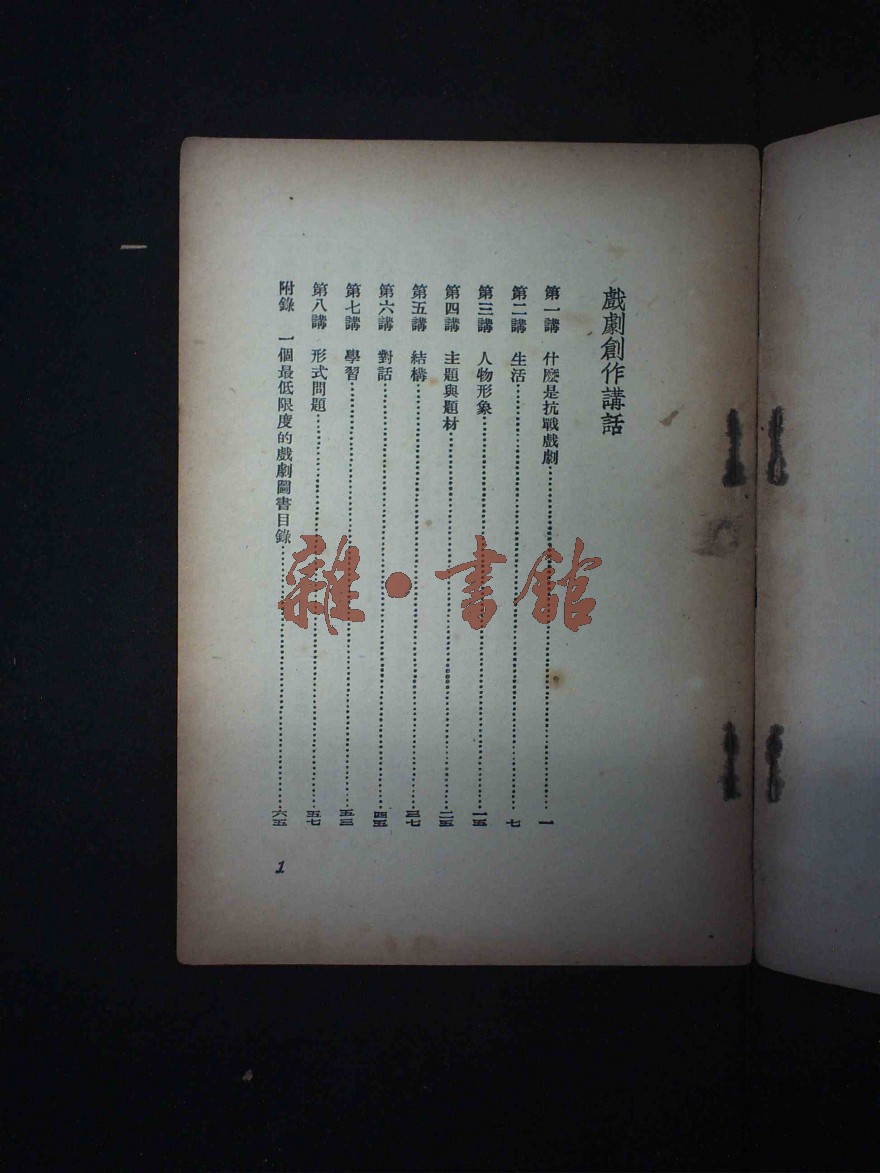 戲劇創作講話
第一講 什麽是抗戰戲劇…………一
第二講 生活…………七
第三講 人物形象…………一五
第四講 主題與題材…………二五
第五講 結構…………三七
第六講 對話…………四五
第七講 學習…………五三
第八講 形式問題…………五七
附錄 一個最低限度的戲劇圖書目錄…………六五
1
雜·書館